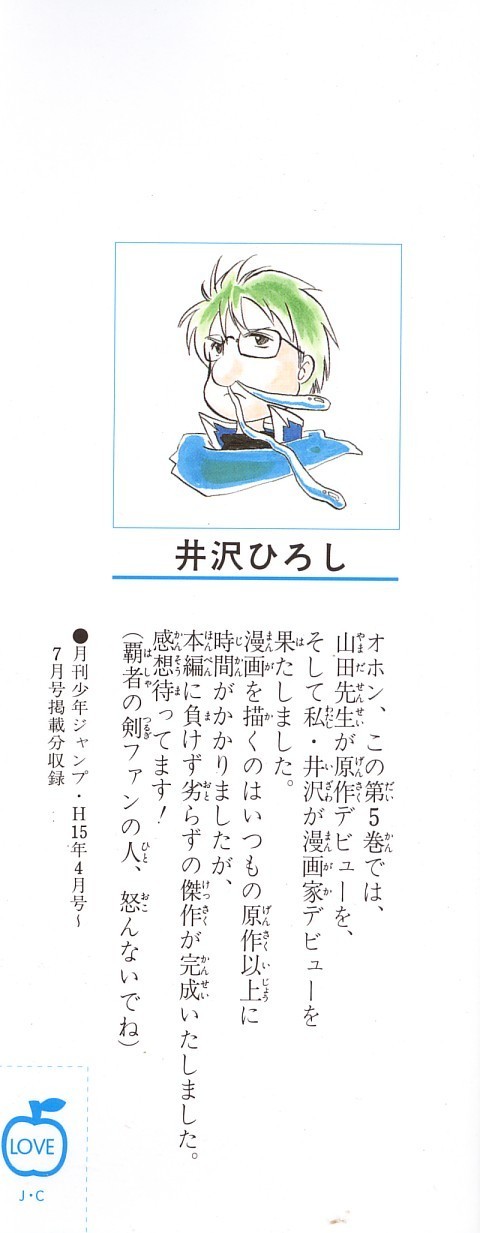 井沢ひろし
オホン、この第5巻では、
山田先生が原作デビューを、
そして私・井沢が漫画家デビューを
果たしました。
漫画を描くのはいつもの原作以上に
時間がかかりましたが、
本編に負けず劣らずの傑作が完成いたしました。
感想待ってます!
(覇者の剣ファンの人、怒んないでね)
●月刊少年ジャンプ・H15年4月号~
7月号掲載分収録
LOVE
J・C